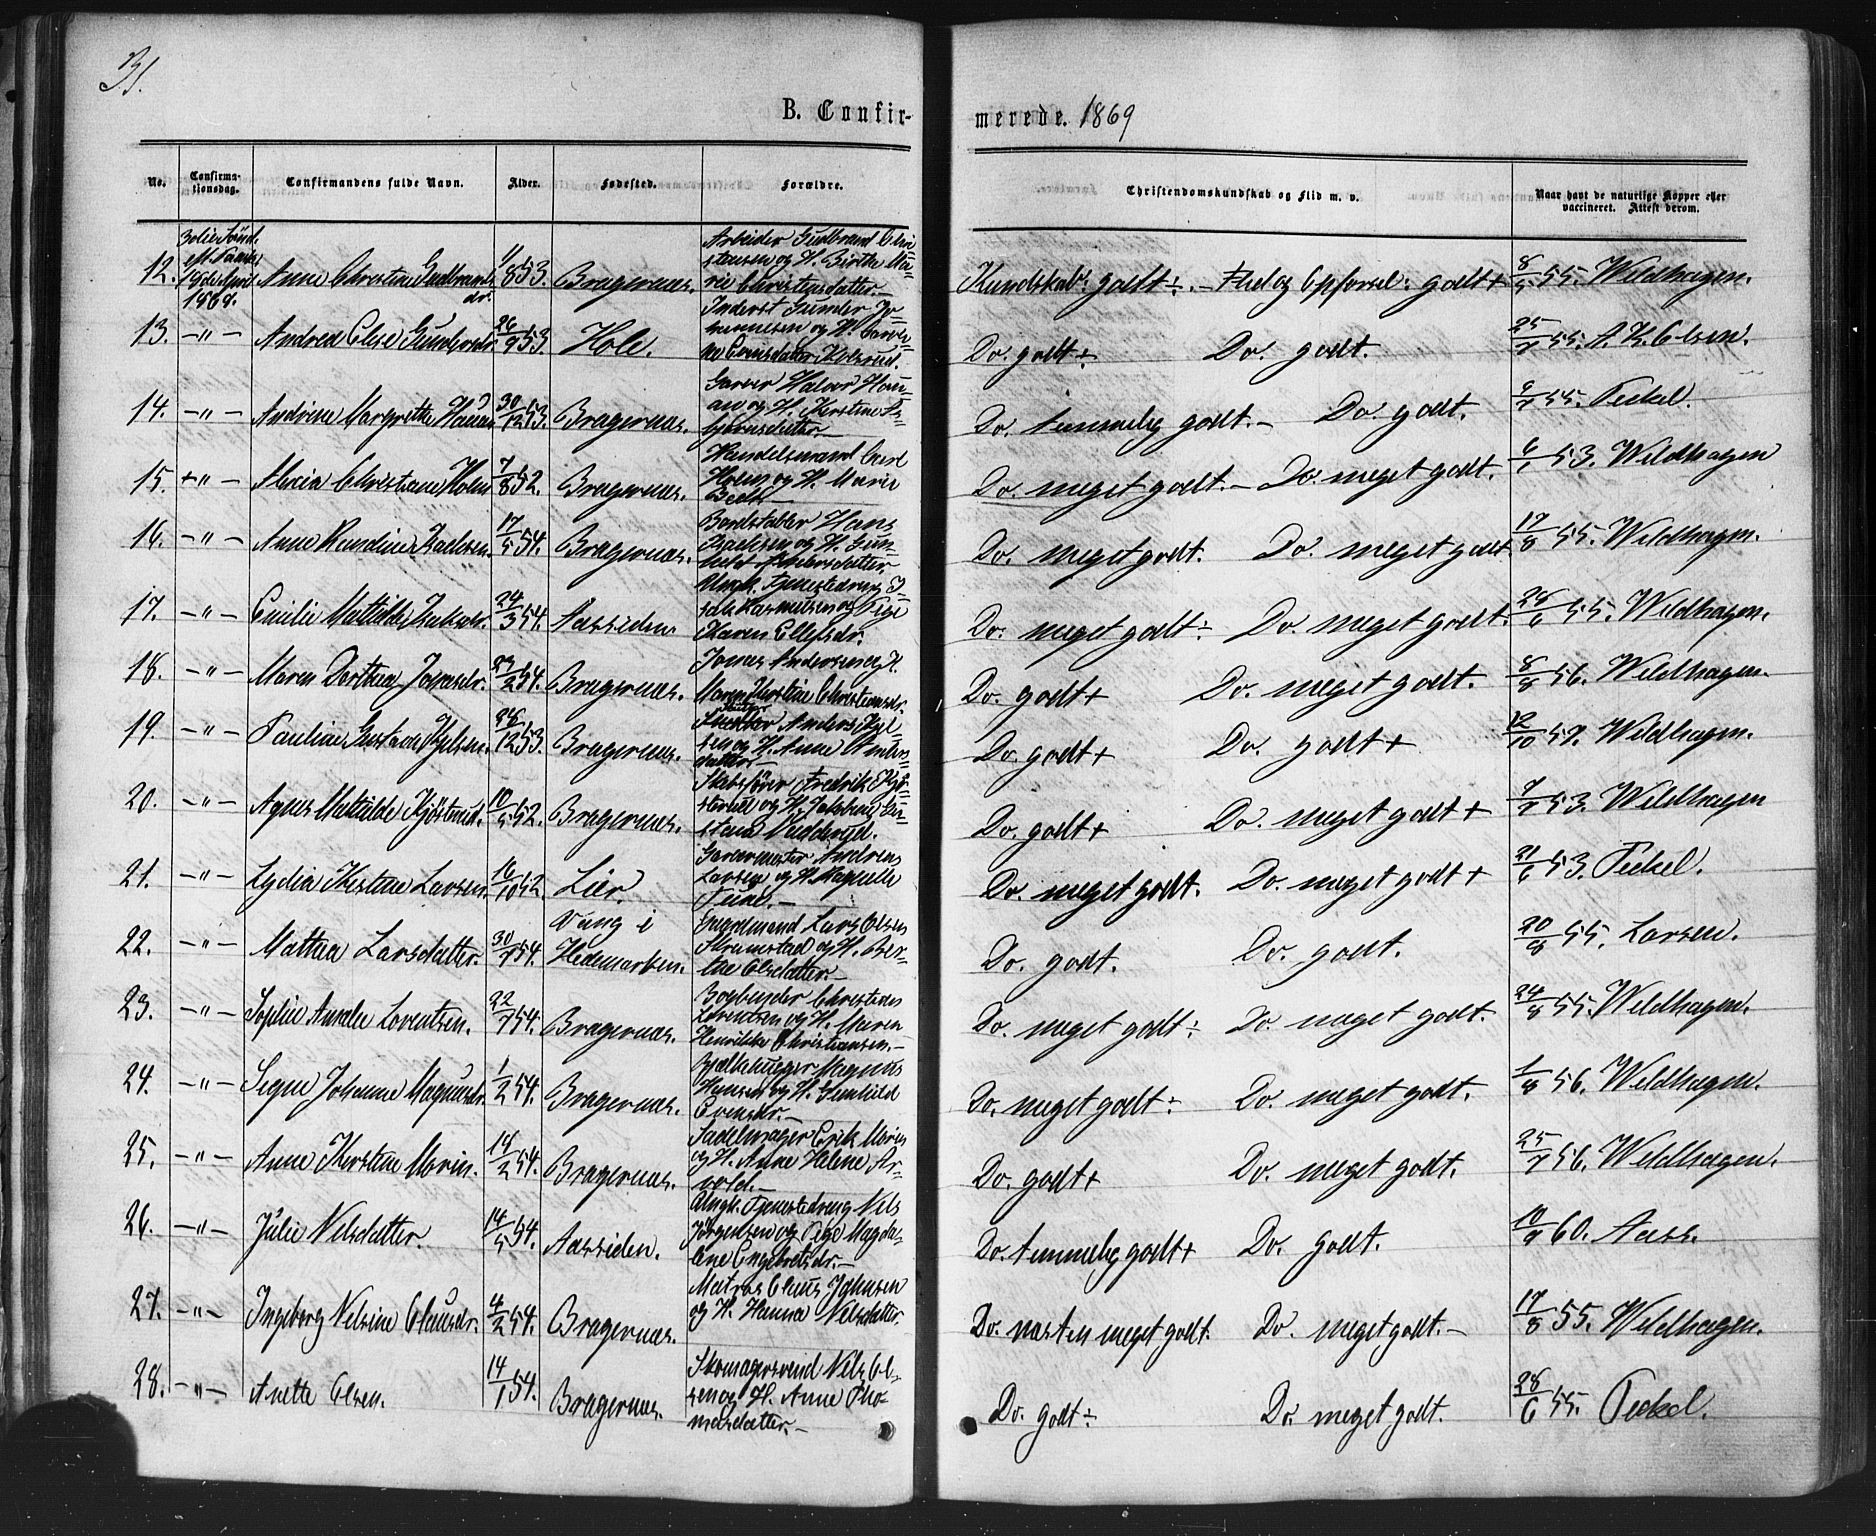 31.
B. Confir-
merede. 1869
No.
Confirma-
tionsdag.
Confirmandens fulde Navn.
Alder.
Fødested.
Forældre.
Christendomskundskab og Flid m. v.
Naar havt de naturlige Kopper eller
vaccineret. Attest derom.
12.
April
1869.
Anne Christine Gudbrands
dr.
11/8 53.
Bragernæs.
Arbeider Gudbrand Chri
stensen og H. Birthe Ma
rie Christensdatter.
Kundskab: godt ÷. – Flid og Opførsel: godt +
8/5 55. Wildhagen.
13. –"–
Andrea Elise Gundersdr.
26/9 53
Hole.
Inderst Gunder Jo
hannesen og H.
Do. godt ÷
Do. godt.
25/7 55. A. K. Olsen.
14. –"–
Andrine Margrethe Hauan
30/12 53.
Bragernæs.
Garver Halvor Hau
an og H. Kirstine As-
bjørnsdatter. –
Do. temmelig godt. – Do. godt.
6/7 55. Peckel.
15. –"–
Christiane Holm
7/8 52.
Bragernæs.
Handelsmand
Holm og H. Marie
Beck –
Do. meget godt. – Do. meget godt.
6/6 53. Wildhagen
16. –"–
Anne Randine Isachsen.
17/5 54.
Bragernæs.
Bordstabler Hans
Isachsen og H. Gun-
hild Andersdatter.
Do. meget godt. Do. meget godt.
17/8 55. Wildhagen.
17. –"–
Emilie Mathilde Isaksdr.
24/3 54.
Aassiden
Ungk. Tjenestedreng I-
sak Rasmussen og Pige
Karen Ellefsdr.
Do. meget godt ÷ Do. meget godt.
28/6 55. Wildhagen.
18. –"–
Maren Dorthea Jonasdr.
23/2 54.
Bragernæs.
Jonas Andersen og H.
Maren Kirstine Christensdr.
Do. godt + Do. meget godt.
8/8 56. Wildhagen.
19. –"–
Pauline Gustava Kjelsen.
26/12 53.
Bragernæs.
Anders Kjel-
sen og H. Anne
datter. –
Do. godt + Do. godt +
12/10 59. Wildhagen.
20. –"–
Agnes Mathilde Kjösterud.
10/5 52.
Bragernæs.
Skibsfører Fredrik Kjö-
sterud og H.
Do. godt + Do. meget godt +
7/7 53. Wildhagen
21. –"–
Lydia Kirstine Larsen.
16/10 52
Lier.
Garvermester Andreas
Larsen og H.
Do. meget godt. Do. meget godt +
21/6 53. Peckel.
22. –"–
Mathea Larsdatter.
30/7 54.
Vang i
Hedemarken.
Gaardmand Lars Olsen
og H. Ber-
the Olsdatter. –
Do. godt. Do. godt.
20/8 55. Larsen.
23. –"–
Sophie Amalie Lorentsen.
22/7 54.
Bragernæs.
Bogbinder Christian
Lorentsen og H. Maren
Henrikke Christiansen. –
Do. meget godt ÷ Do. meget godt.
24/8 55. Wildhagen.
24. –"–
Signe Johanne Magnusdr.
1/2 54.
Bragernæs.
Bjælkehugger Magnus
Hansen og H. Gunhild
Evensdr. –
Do. meget godt ÷ Do. meget godt.
1/8 56. Wildhagen.
25. –"–
Anne Kirstine Morin.
14/2 54.
Bragernæs.
Sadelmager Erik Morin
og H. Anne Helene Ar-
vold. –
Do. godt + Do. meget godt.
25/7 56. Wildhagen.
26. –"–
Julie Nelsdatter.
14/5 54.
Aassiden.
Ungk. Tjenestedreng Nels
Jørgensen og Pige Magda-
lene Engebretsdr. –
Do. temmelig godt + Do. godt.
10/9 60. Aass.
27. –"–
Ingeborg Nelsine Clausdr.
4/2 54.
Bragernæs.
Matros Claus Johnsen
og H. Hanna Nelsdatter.
Do. næsten meget godt. Do. meget godt. –
17/8 55. Wildhagen.
28. –"–
Anette Olsen.
14/1 54.
Bragernæs.
Skomagersvend Nels Ol-
sen og H. Anne Tho-
masdatter. –
Do. godt ÷ Do. meget godt.
28/6 55. Peckel.